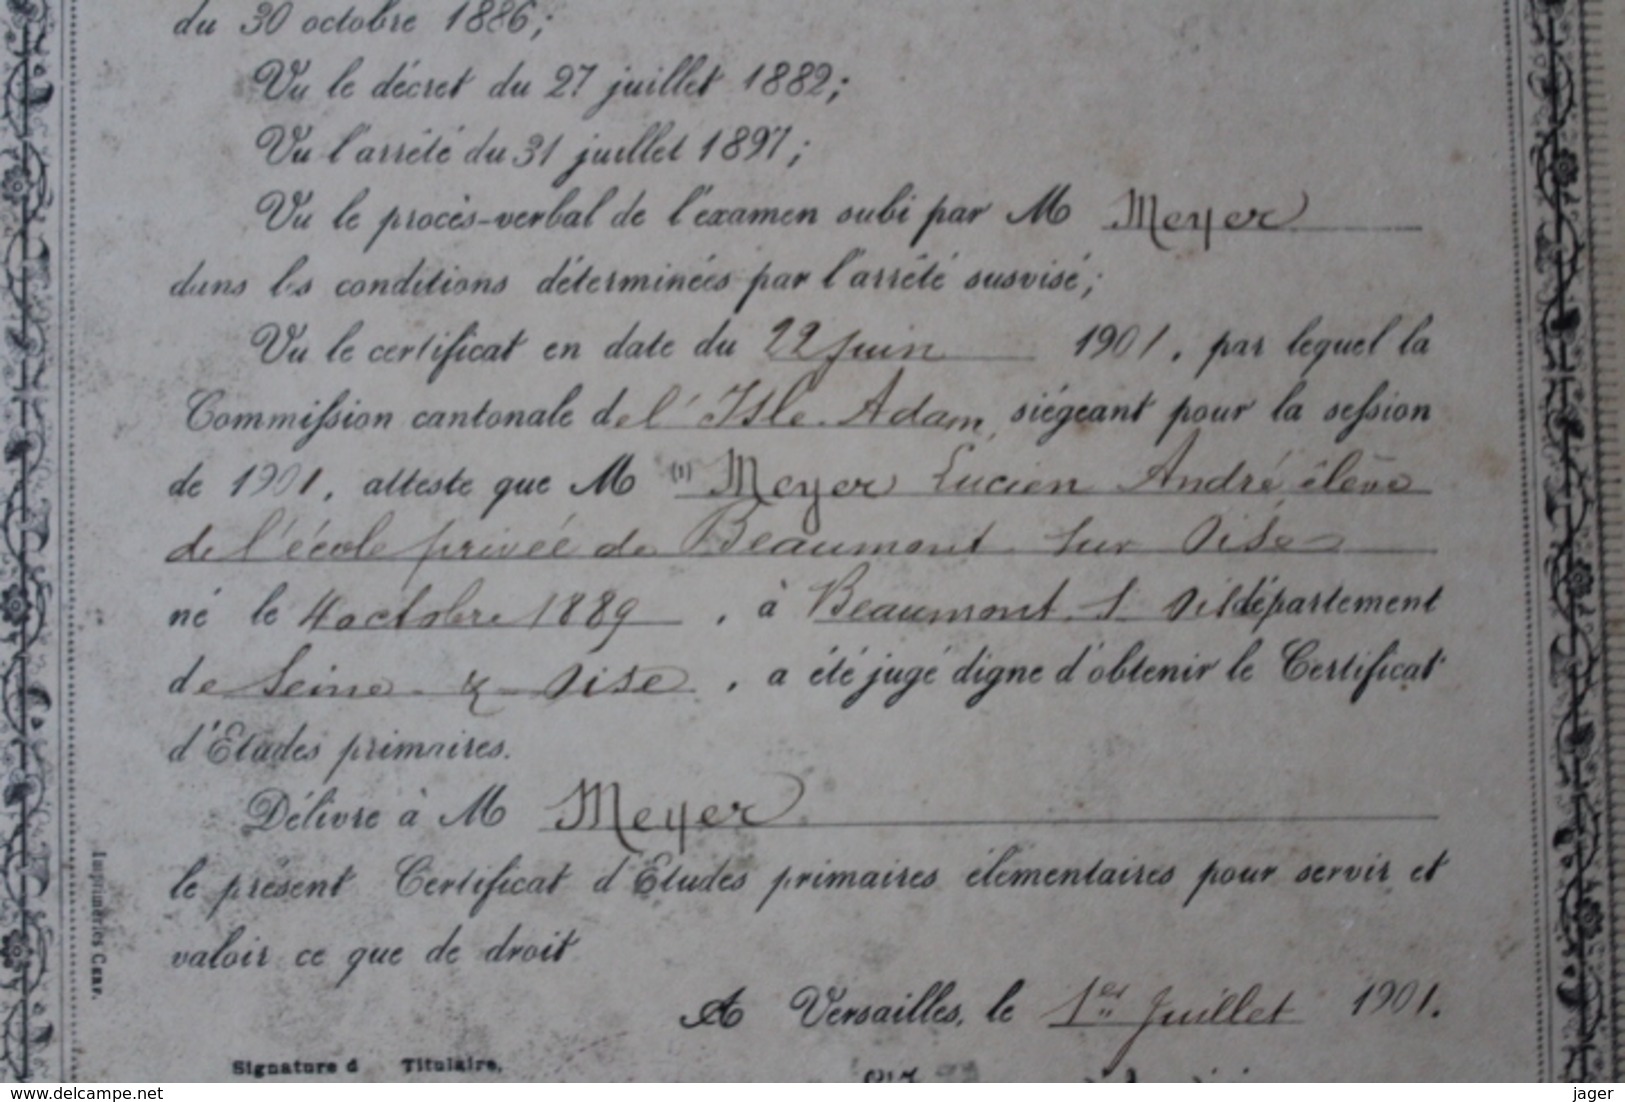 du 30 octobre 1886;
Vu le décret du 27 juillet 1882;
Vu l'arrêté du 31 juillet 1897;
Vu le procès-verbal de l'examen subi par M Meyer
dans les conditions déterminées par l'arrêté susvisé;
Vu le certificat en date du 22 juin 1901, par lequel la
Commission cantonale de l'Isle-Adam, siégeant pour la session
de 1901, atteste que M (1) Meyer Lucien André élève
de l'école privée de Beaumont sur Oise
né le 4 octobre 1889, à Beaumont s Oise département
de Seine & Oise, a été jugé digne d'obtenir le Certificat
d'Etudes primaires.
Délivré à M Meyer
le présent Certificat d'Etudes primaires élémentaires pour servir et
valoir ce que de droit
A Versailles, le 1er Juillet 1901.
Signature d Titulaire,
Imprimeries Cerf.
www.delcampe.net
jager